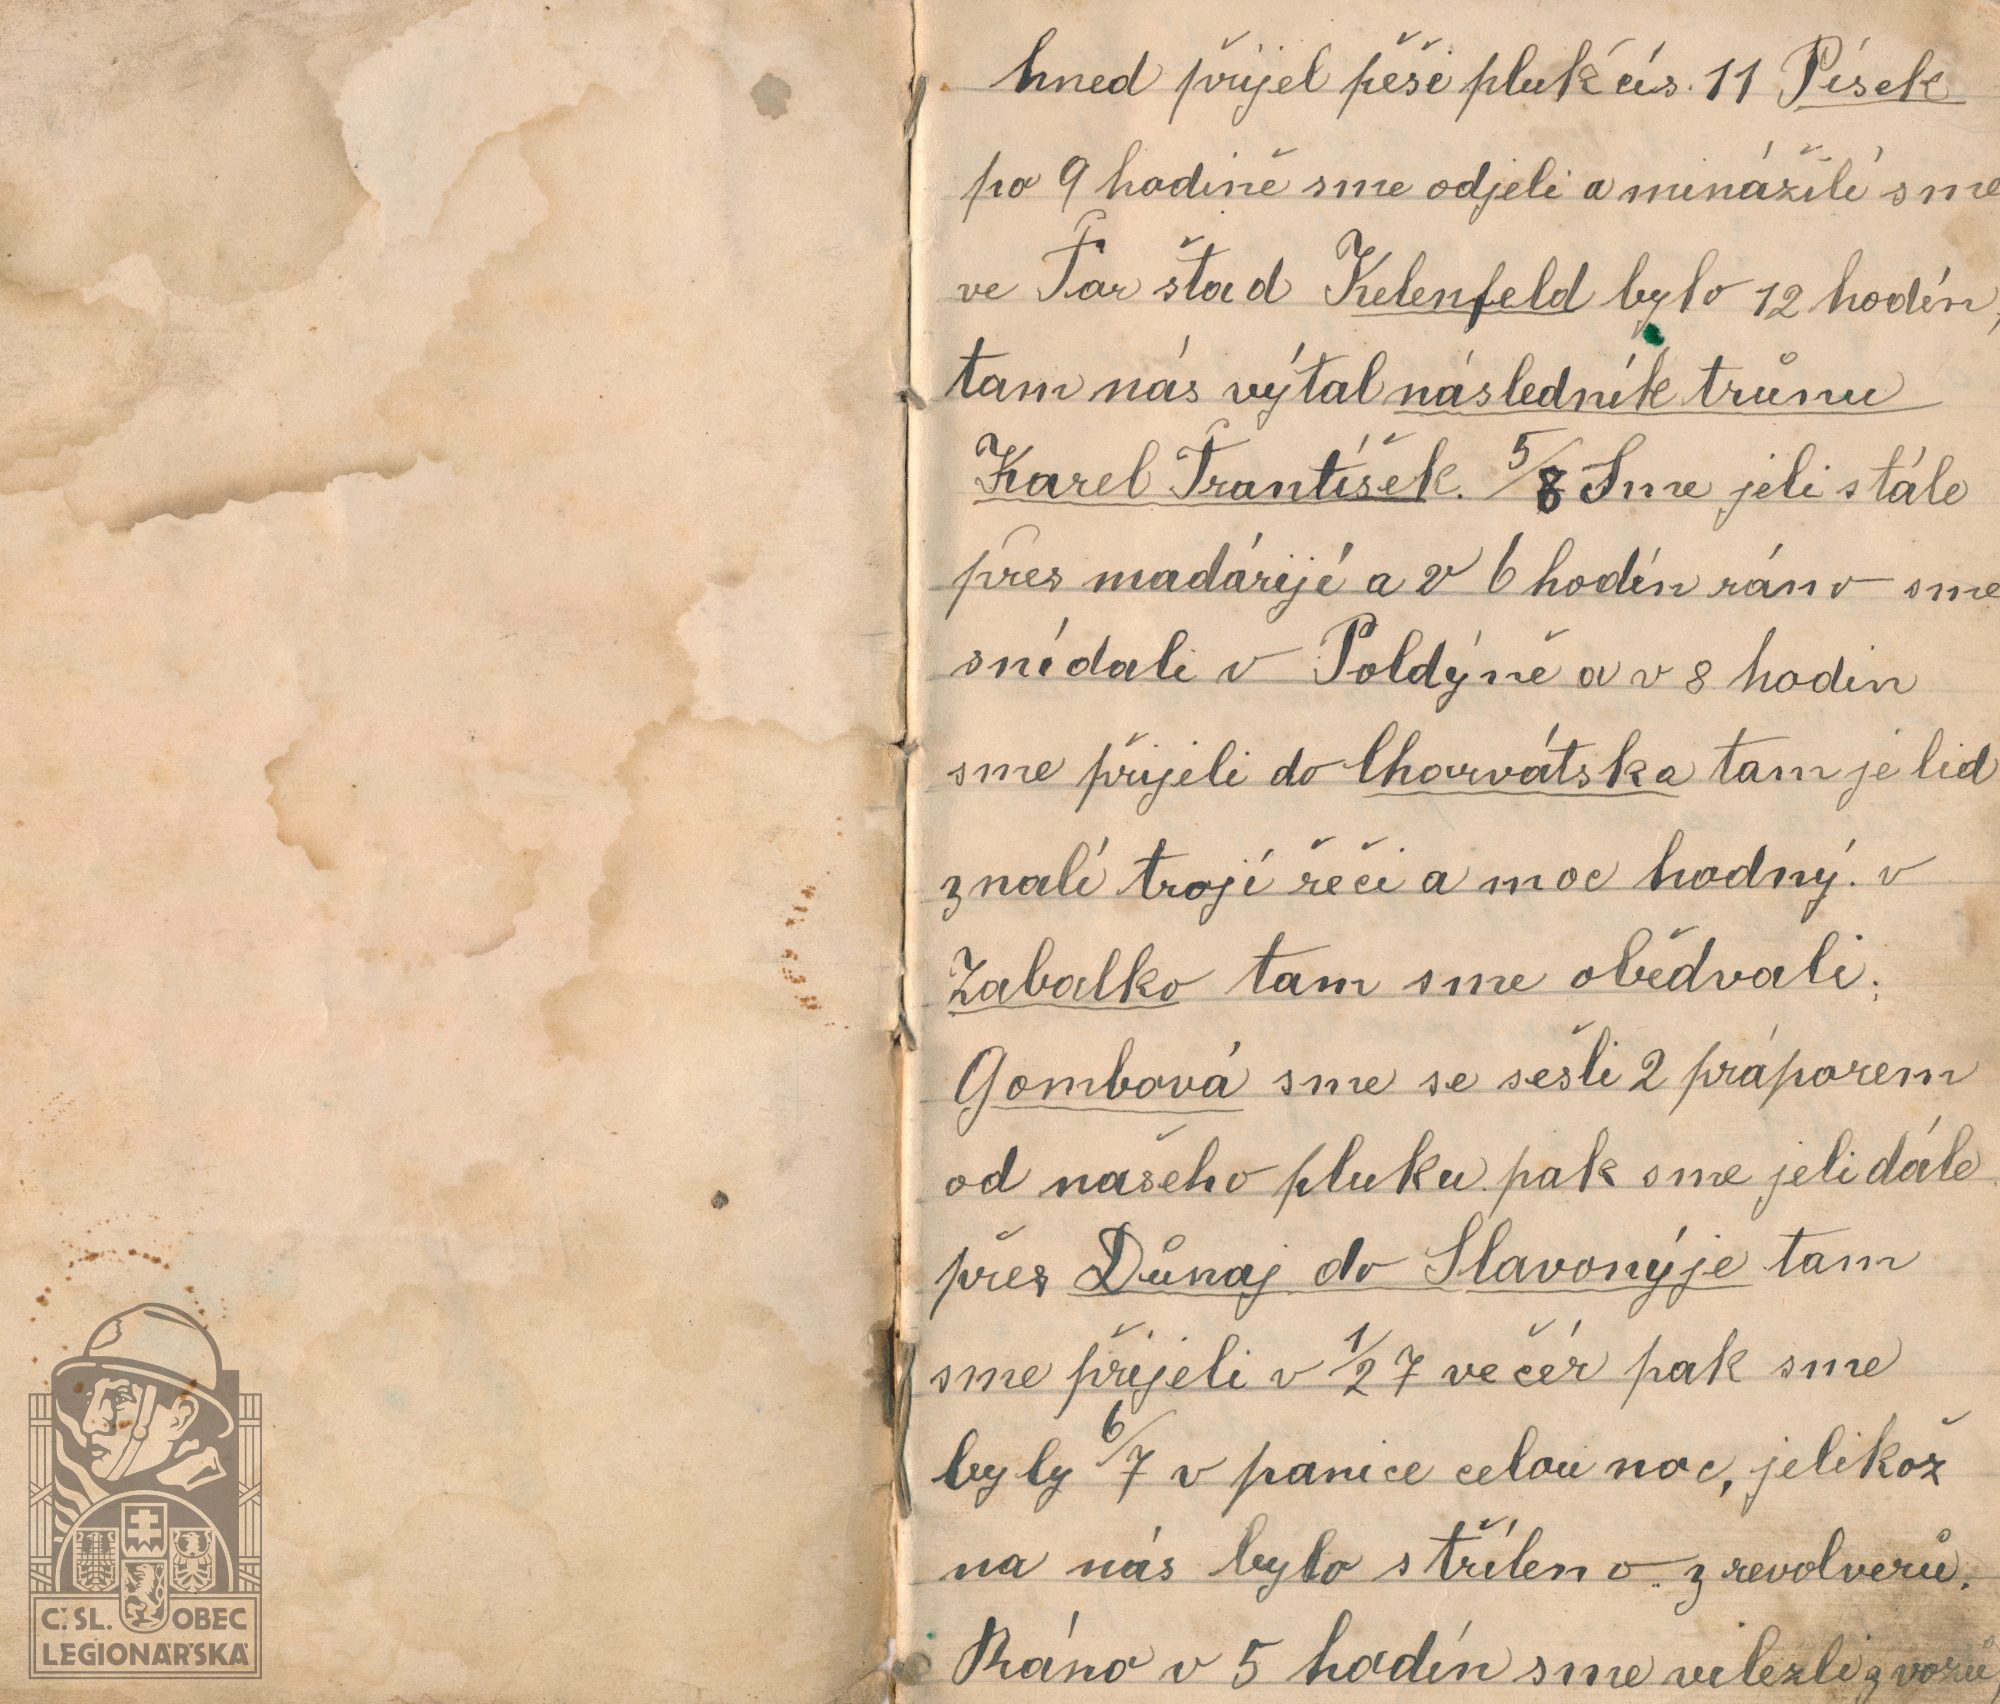 hned přijel pěši pluk čís. 11 Písek
po 9 hodině sme odjeli a minážili sme
ve Far štad Kelenfeld bylo 12 hodin,
tam nás výtal následník trůnu
Karel František. 5/8 Sme jeli stále
přes madáriji a v 6 hodin ráno sme
snídali v Poldýně a v 8 hodin
sme přijeli do Chorvátska tam je lid
znalí trojí řeči a moc hodný. v
Zabalko tam sme obědvali.
Gombová sme se sešli 2 práporem
od našeho pluku pak sme jeli dále
přes Důnaj do Slavonýje tam
sme přijeli v 1/2 7 večér pak sme
byly 6/7 v panice celou noc, jelikož
na nás bylo stříleno z revolverů.
Ráno v 5 hodín sme vilezli z vozů,
Č. SL. OBEC
LEGIONÁŘSKÁ